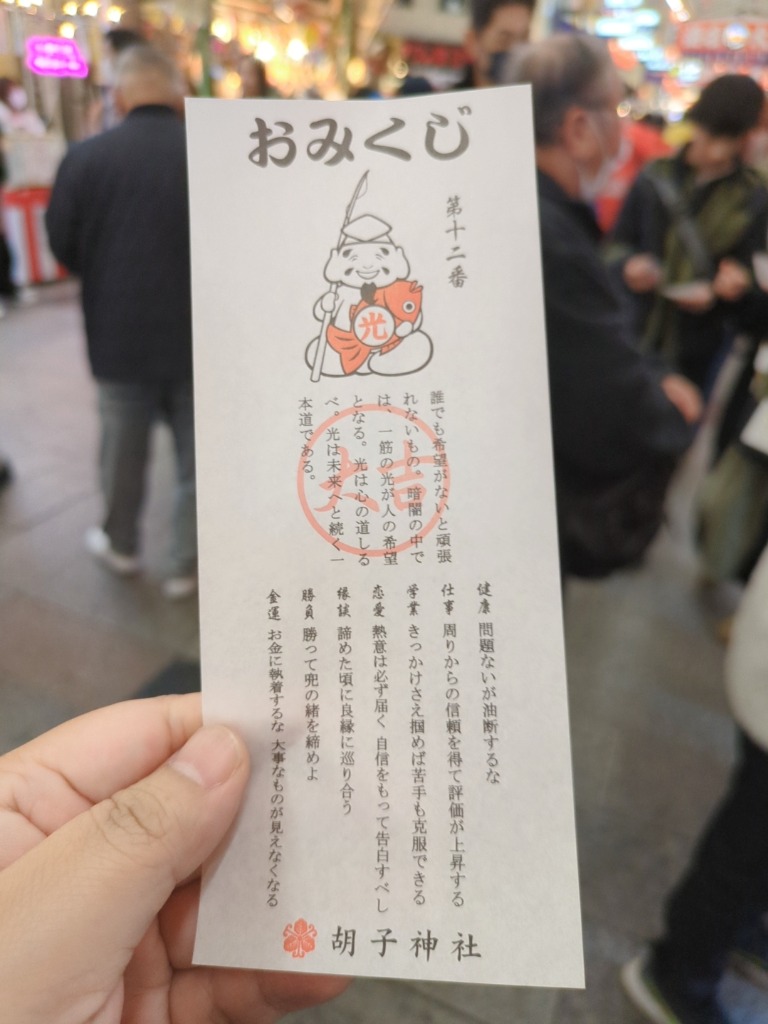 おみくじ
第十二番
光
大吉
誰でも希望がないと頑張
れないもの。暗闇の中で
は、一筋の光が人の希望
となる。光は心の道しる
べ。光は未来へと続く一
本道である。
健康 問題ないが油断するな
仕事 周りからの信頼を得て評価が上昇する
学業 きっかけさえ掴めば苦手も克服できる
恋愛 熱意は必ず届く 自信をもって告白すべし
縁談 諦めた頃に良縁に巡り合う
勝負 勝って兜の緒を締めよ
金運 お金に執着するな 大事なものが見えなくなる
胡子神社